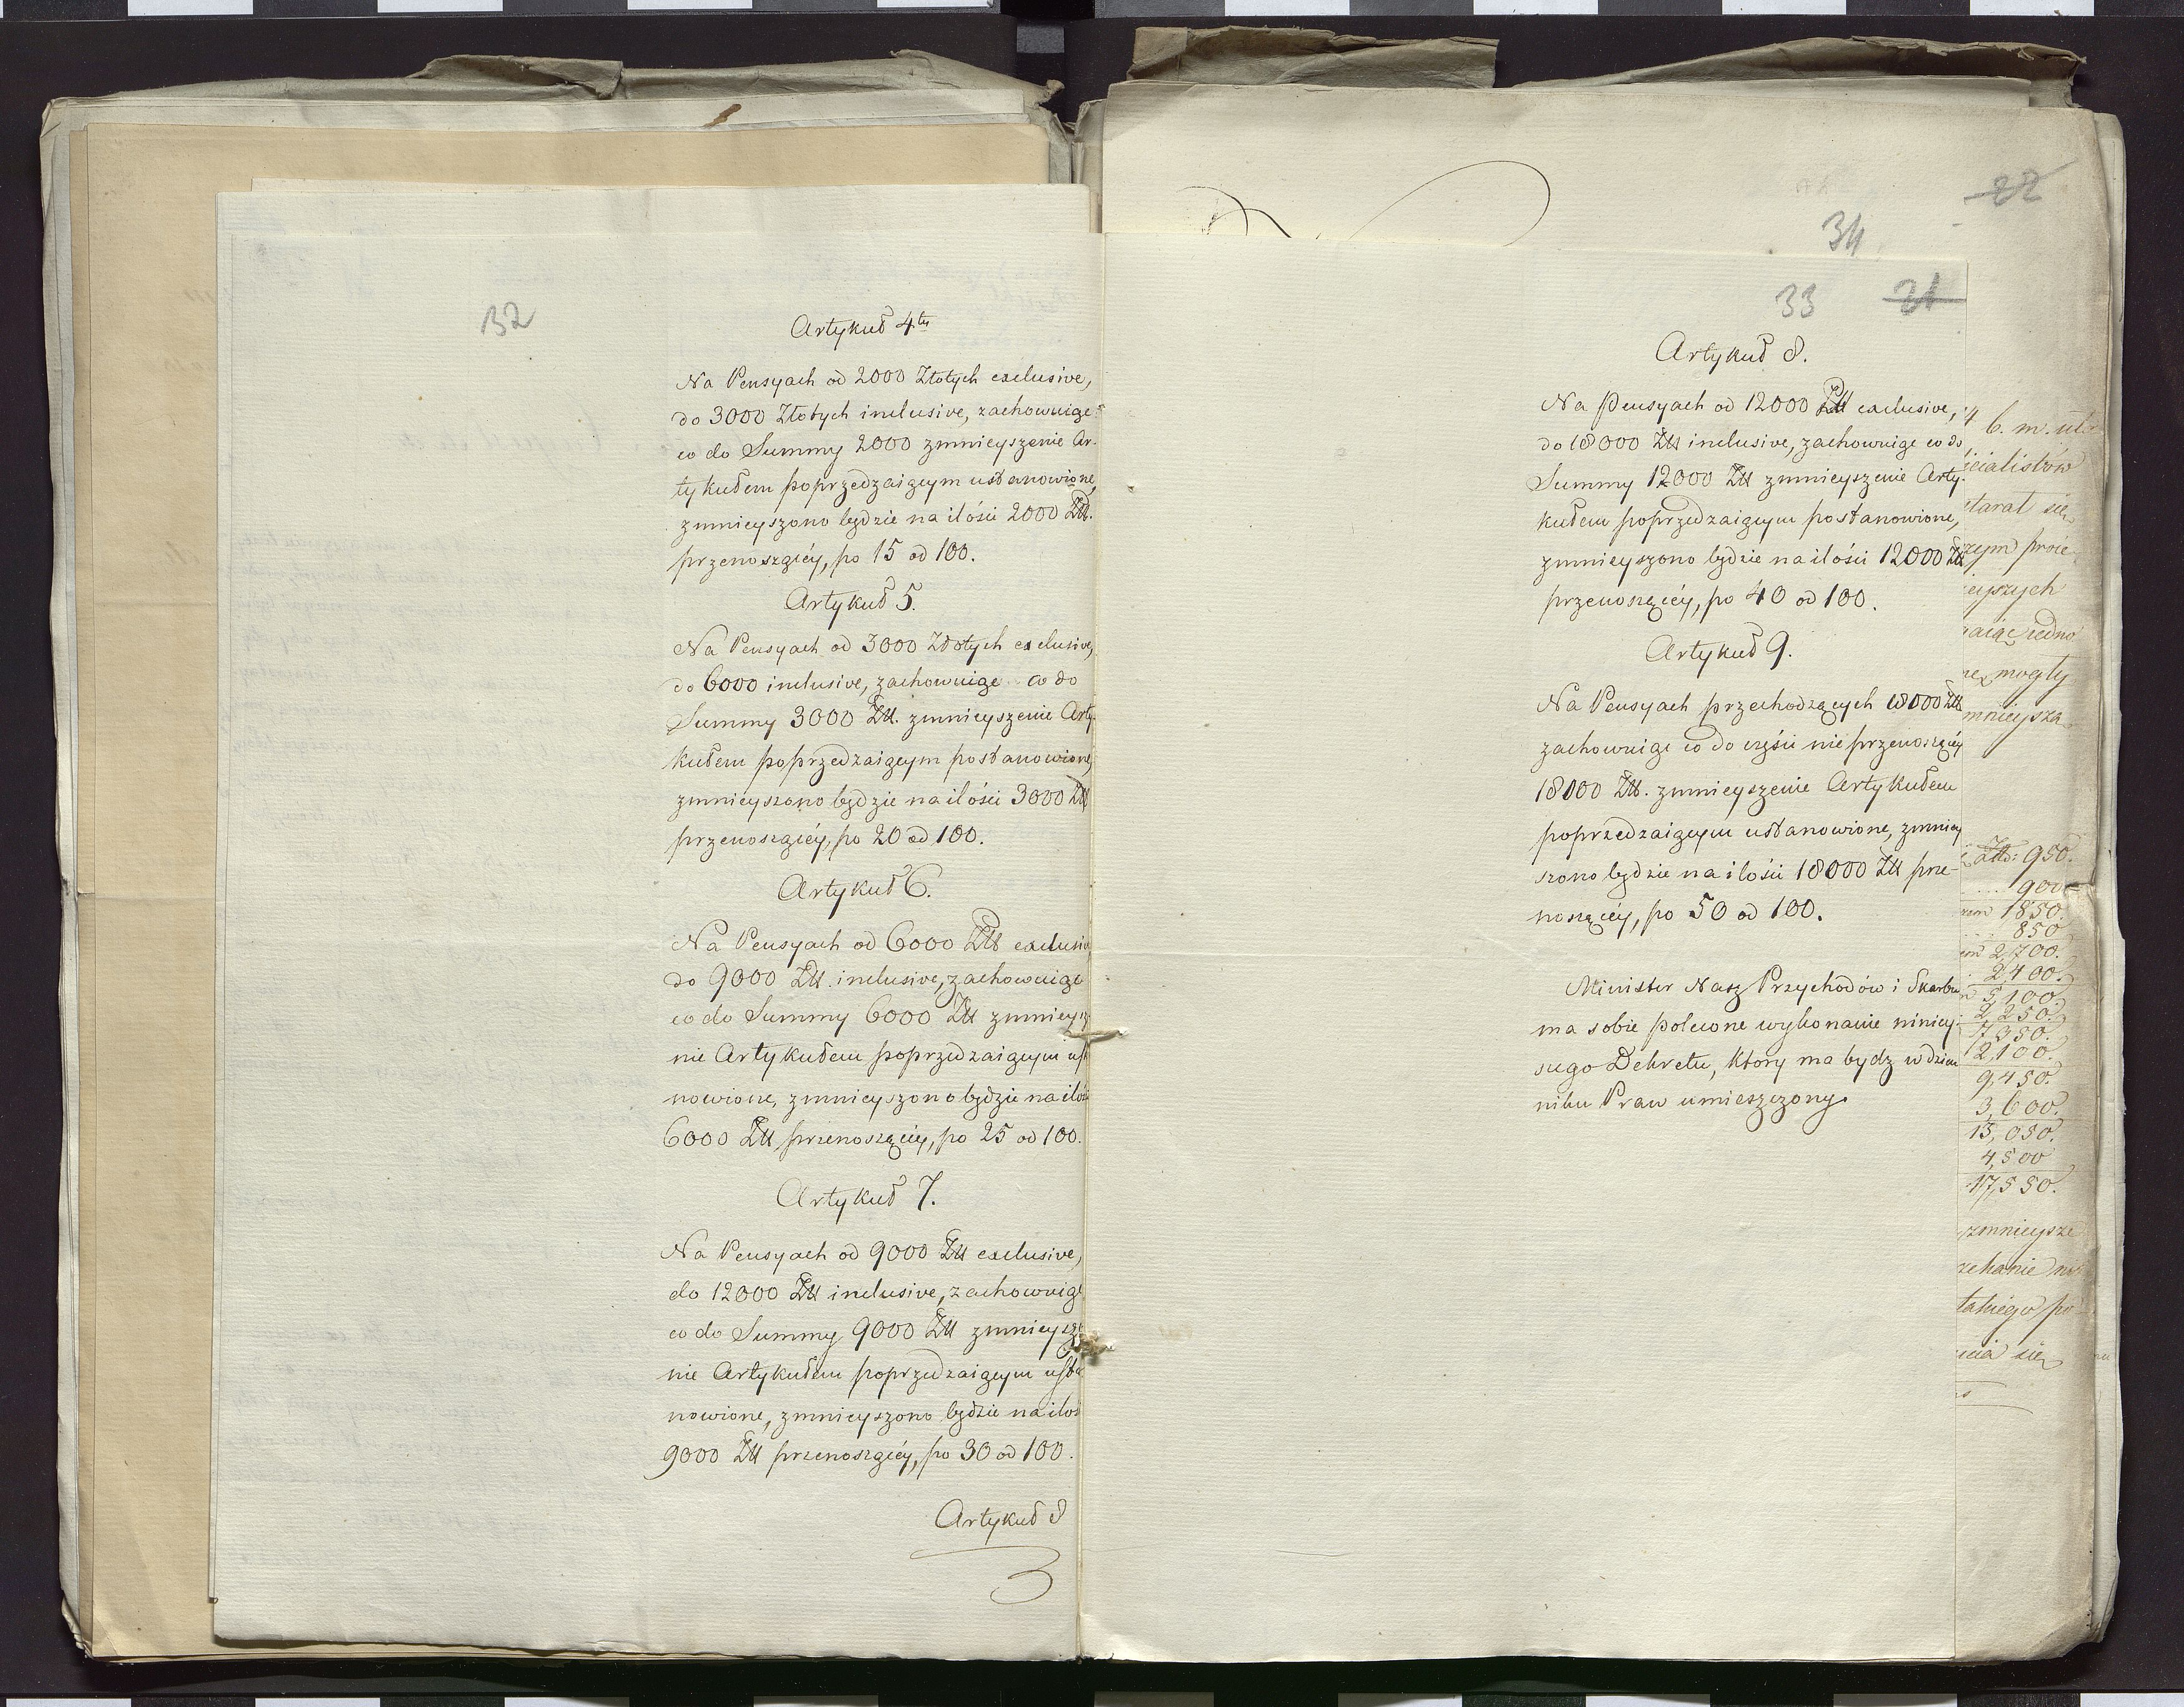 32
Artykuł 4ty
Na Pensyach od 2000 Złotych exclusive,
do 3000 Złotych inclusive, zachowuiąc
co do Summy 2000 zmnieyszenie Ar-
tykułem poprzedzaiącym ustanowione,
zmnieyszono będzie na ilości 2000 Złł.
przenoszącéy, po 15 od 100.
Artykuł 5.
Na Pensyach od 3000 Złotych exclusive,
do 6000 inclusive, zachowuiąc co do
Summy 3000 Złł. zmnieyszenie Arty-
kułem poprzedzaiącym postanowione,
zmnieyszono będzie na ilości 3000 Złł
przenoszącéy, po 20 od 100.
Artykuł 6.
Na Pensyach od 6000 Złł exclusiv
do 9000 Złł. inclusive, zachowuiąc
co do Summy 6000 Złł zmnieysz
nie Artykułem poprzedzaiącym us
nowione, zmnieyszono będzie na iloś
6000 Złł przenoszącéy, po 25 od 100.
Artykuł 7.
Na Pensyach od 9000 Złł exclusive,
do 12000 Złł inclusive, zachowuiąc
co do Summy 9000 Złł zmnieysz
nie Artykułem poprzedzaiącym usta
nowione, zmnieyszono będzie na iloś
9000 Złł przenoszącéy, po 30 od 100.
Artykuł 8
22
34
33 21
Artykuł 8.
Na Pensyach od 12000 Złł exclusive,
do 18000 Złł inclusive, zachowuiąc co do
Summy 12000 Złł zmnieyszenie Arty-
kułem poprzedzaiącym postanowione,
zmnieyszono będzie na ilości 12000 Złł
przenoszącéy, po 40 od 100.
Artykuł 9.
Na Pensyach przechodzących 18000 Złł
zachowuiąc co do części nieprzenoszącéy
18000 Złł. zmnieyszenie Artykułem
poprzedzaiącym ustanowione, zmniey
szono będzie na ilości 18000 Złł prze-
noszącéy, po 50 od 100.
Minister Nasz Przychodów i Skarbu
ma sobie polecone wykonanie niniey-
szego Dekretu, który ma bydź w dzien
niku Praw umieszczony.
b. m.
icialistów
starał się
szym proie
ieyszych
aiąc iedno
mogły
mnieysza
Złł: 950.
900
1850.
850
2,700.
2,400.
5,100.
2,250.
7,350.
2,100.
9,450.
3,600.
13,050.
4,500
17,550.
zmnieysze
takiego po
się